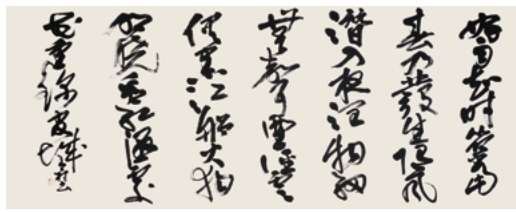 好雨知时節當
春乃發生随風
潜入夜润物細
無聲野徑雲
俱黑江船火獨
明曉看紅濕處
花重錦官城